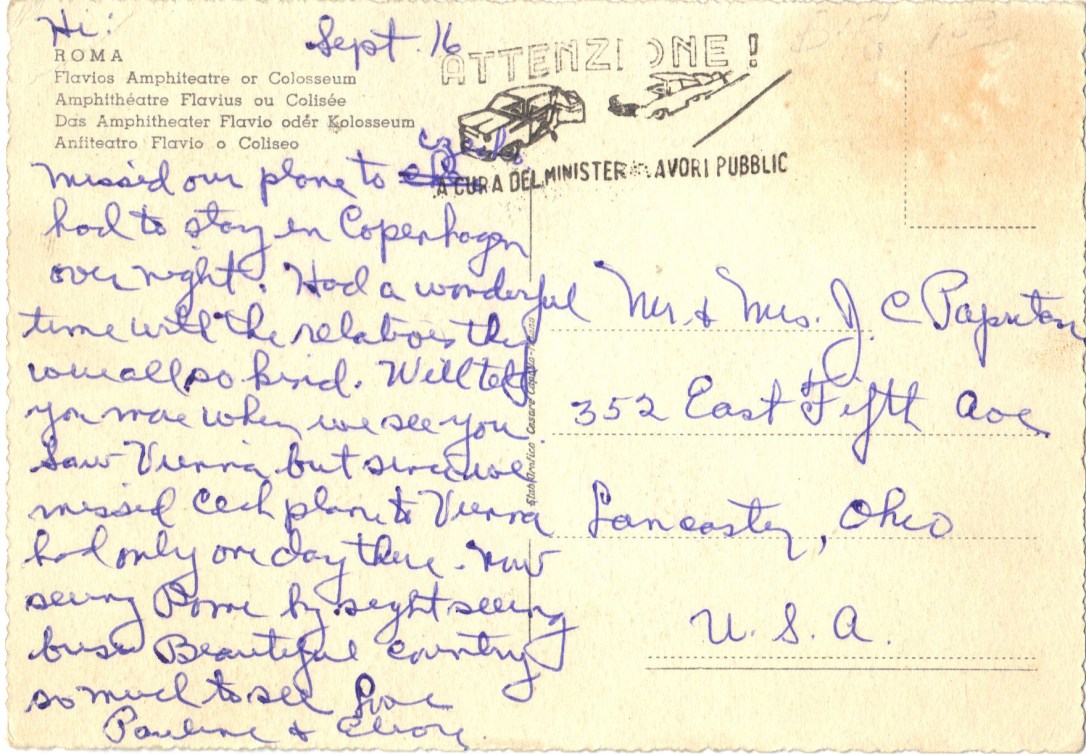 Hi:
Sept. 16
ROMA
Flavios Amphiteatre or Colosseum
Amphithéatre Flavius ou Colisée
Das Amphitheater Flavio oder Kolosseum
Anfiteatro Flavio o Coliseo
ATTENZIONE!
A CURA DEL MINISTER LAVORI PUBBLIC
missed our plane to Czech
had to stay in Copenhagen
over night. Had a wonderful
time with the relatives they
were all so kind. Will tell
you more when we see you
Saw Vienna but since we
missed Cech plane to Vienna
had only one day there. Now
seeing Rome by sight seeing
buses Beautiful country
so much to see Love
Pauline &
Mr & Mrs. J. C
352 East Fifth Ave
Lancaster, Ohio
U. S. A.